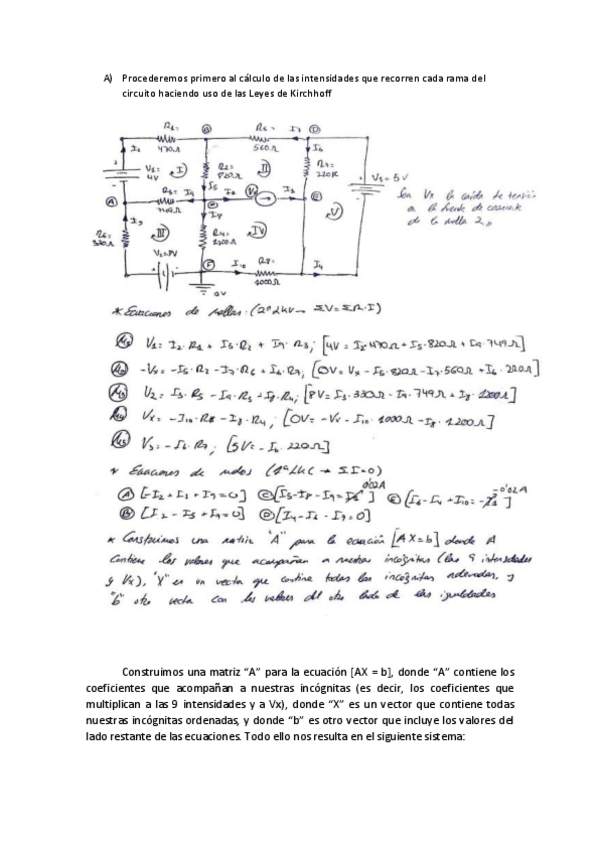 A) Procederemos primero al cálculo de las intensidades que recorren cada rama del
circuito haciendo uso de las Leyes de Kirchhoff
R1=
470Ω
I2
V1=
4V
I
B
R6=
560Ω
I7
D
R2=
820Ω
II
I6
R7=
220Ω
V3=5V
A
I5
C
E
V
III
IV
R4=
1200Ω
V2=8V
F
R8=
1000Ω
0V
Sea Vx la caída de tensión
en la fuente de corriente
de la malla 2
* Ecuaciones de mallas (2ª LKV → ΣV=ΣR·I)
V1 = I2·R1 + I5·R2 + I9·R3; [4V = I2·470Ω + I5·820Ω + I9·749Ω]
-Vx = -I5·R2 - I7·R6 + I6·R7; [0V = Vx - I5·820Ω - I7·560Ω + I6·220Ω]
V2 = I3·R5 - I9·R3 + I8·R4; [8V = I3·330Ω - I9·749Ω + I8·1200Ω]
Vx = -I10·R8 - I8·R4; [0V = -Vx - I10·1000Ω - I8·1200Ω]
V3 = -I6·R7; [5V = -I6·220Ω]
* Ecuaciones de nudos (1ª LKC → ΣI=0)
0'02A
-0'02A
A [-I2 + I3 + I9 = 0] C [I5 - I8 - I9 =
B [I2 - I5 + I7 = 0] D [I4 - I6 - I7 = 0]
* Construimos una matriz "A" para la ecuación [AX=b] donde A
contiene los valores que acompañan a nuestras incógnitas (las 9 intensidades
y Vx), "X" es un vector que contiene todas las incógnitas ordenadas, y
"b" otro vector con los valores del otro lado de las igualdades
Construimos una matriz “A” para la ecuación [AX = b], donde “A” contiene los
coeficientes que acompañan a nuestras incógnitas (es decir, los coeficientes que
multiplican a las 9 intensidades y a Vx), donde “X” es un vector que contiene todas
nuestras incógnitas ordenadas, y donde “b” es otro vector que incluye los valores del
lado restante de las ecuaciones. Todo ello nos resulta en el siguiente sistema: